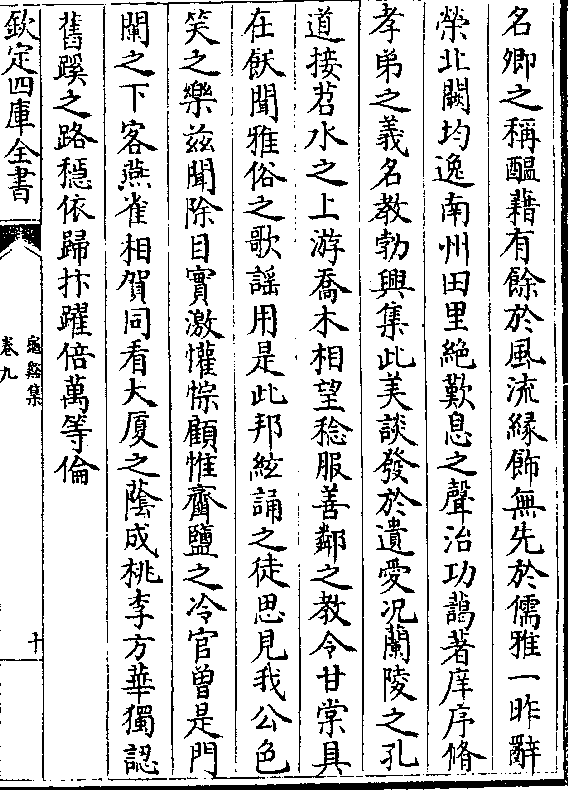 名卿之稱醖藉有餘於風流縁飾無先於儒雅一昨辭
榮北闕均逸南州田里絶歎息之聲治功藹著庠序脩
孝弟之義名教勃興集此美談發於遺愛况蘭陵之孔
道接苕水之上游喬木相望稔服善鄰之教令甘棠具
在飫聞雅俗之歌謡用是此邦絃誦之徒思見我公色
笑之樂兹聞除目實激懽悰顧惟齏鹽之冷官曽是門
闌之下客燕雀相賀同看大厦之䕃成桃李方華獨認
舊蹊之路穩依歸抃躍倍萬等倫
欽定四庫全書
龜谿集
卷九
十